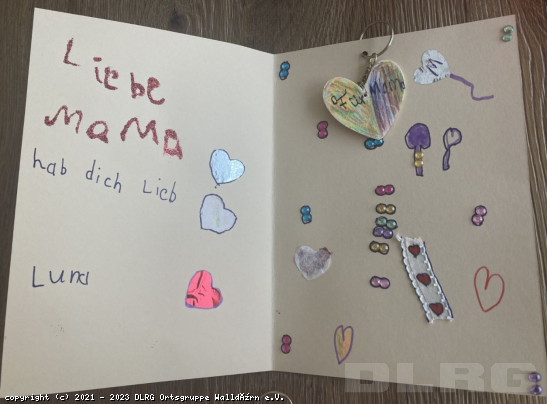 Liebe
MaMA
hab dich Lieb
Luna
Für Mama
DLRG
copyright (c) 2021 - 2023 DLRG Ortsgruppe WalldÃ¼rn e.V.